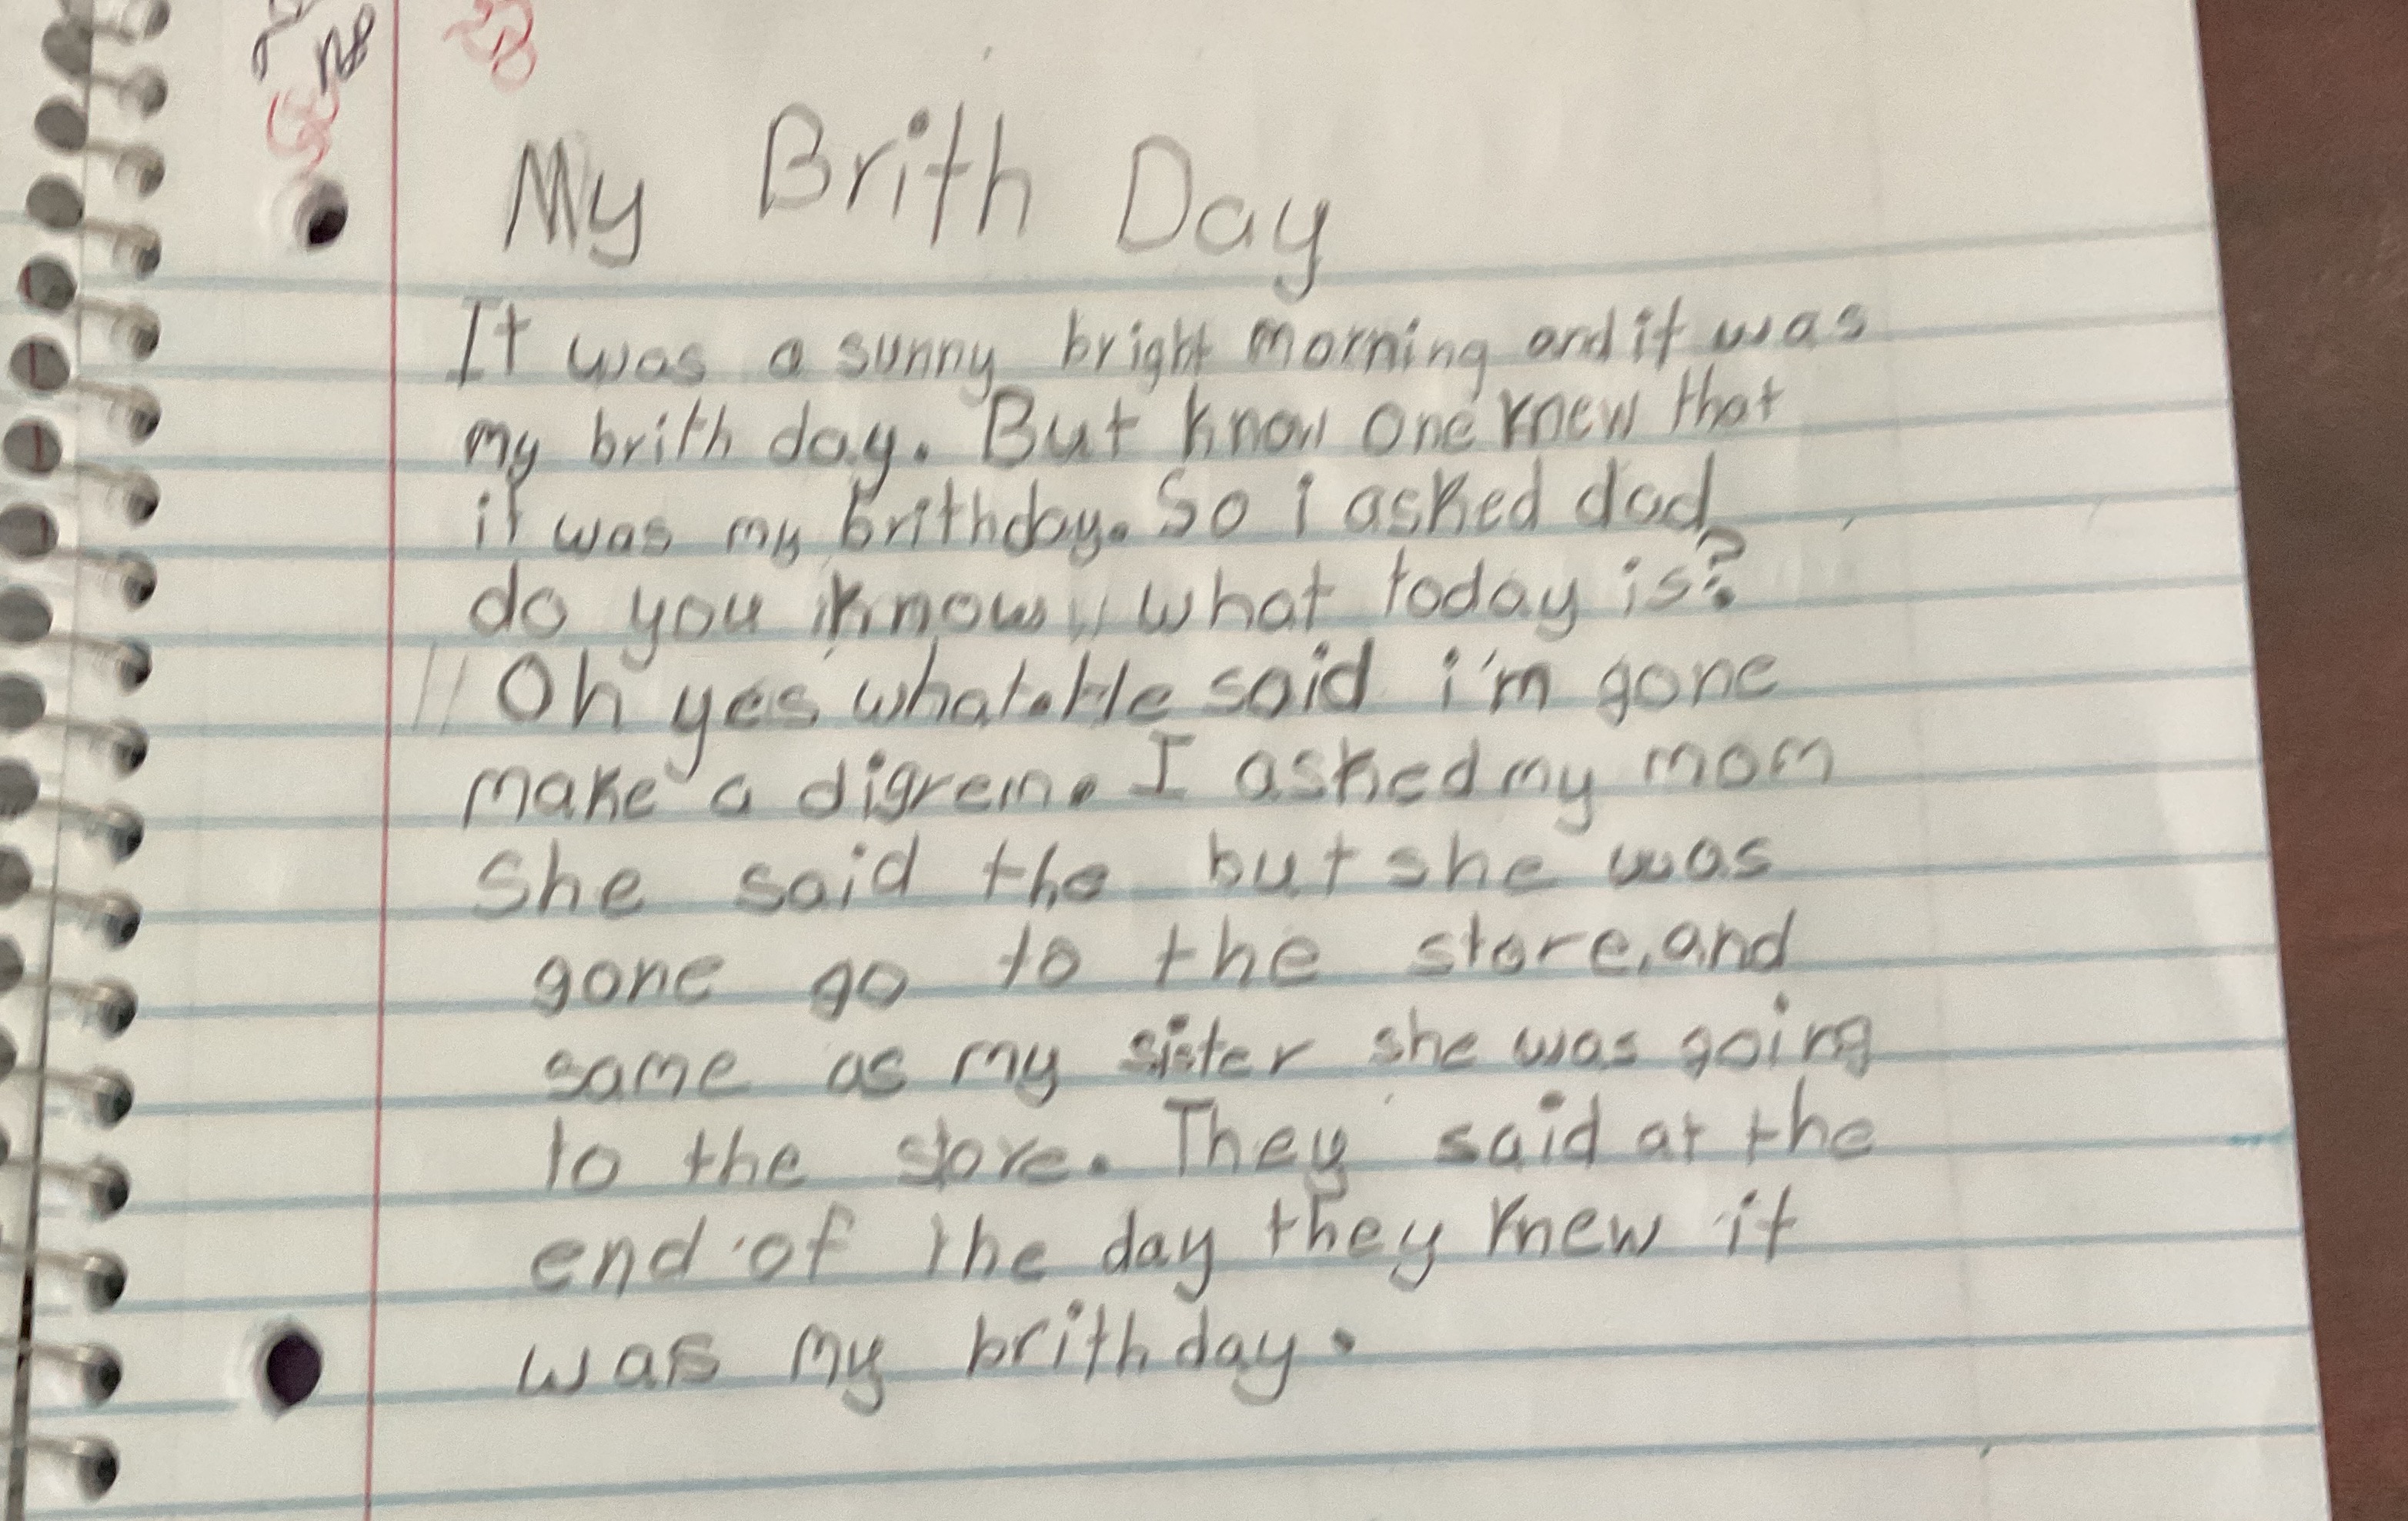 My Brith Day
It was a sunny bright morning and it was
my brith day. But know one knew that
it was my brithday. So i asked dad
do you know,, what today is?
"Oh yes what. He said i'm gone
make a digrem. I asked my mom
She said the but she was
gone go to the store, and
same as my sister she was going
to the store. They said at the
end of the day they knew it
was my brithday.